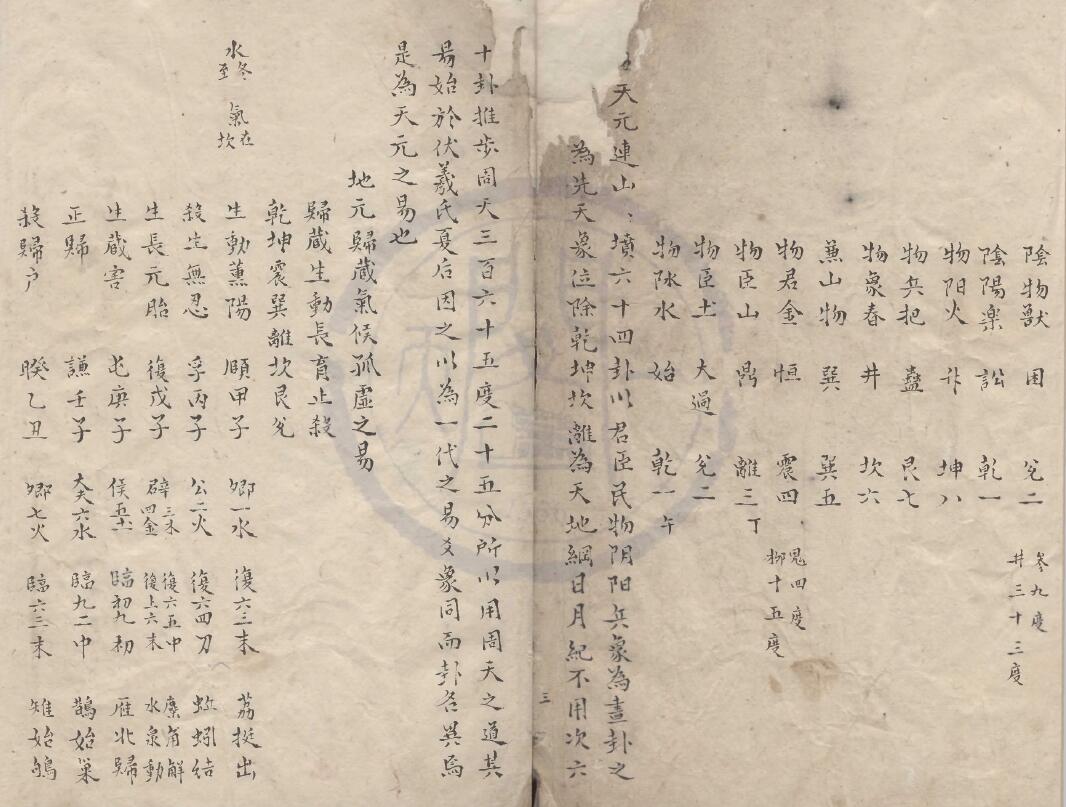 陰物獸 困 兌二 參九度
井三十三度
陰陽樂 訟 乾一
物阳火 升 坤八
物兵把 蠱 艮七
物象春 井 坎六
兼山物 巽 巽五
物君金 恒 震四 鬼四度
柳十五度
物臣山 鼎 離三 丁
物臣土 大過 兌二
物陈水 始 乾一 午
天元連山、墳六十四卦以君臣民物阴阳兵象為畫卦之
為先天象位除乾坤坎離為天地綱日月紀不用次六
三
十卦推步周天三百六十五度二十五分所以用周天之道其
易始於伏羲氏夏后因之以為一代之易爻象同而卦名異焉
是為天元之易也
地元歸蔵氣候孤虛之易
歸蔵生動長育止殺
乾坤震巽離坎艮兌
水冬至 氣在坎
生動薰陽 頤甲子 卿一水 復六三末 荔挺出
殺生無忍 孚丙子 公二火 復六四刀 蚯蚓结
生長元胎 復戊子 辟三木四金 復六五中 麋角解
復上六末 水泉動
生蔵害 屯庚子 侯五土 臨初九初 雁北歸
正歸 謙壬子 大夫六水 臨九二中 鵲始巢
殺歸户 睽乙丑 卿七火 臨六三末 雉始鴝